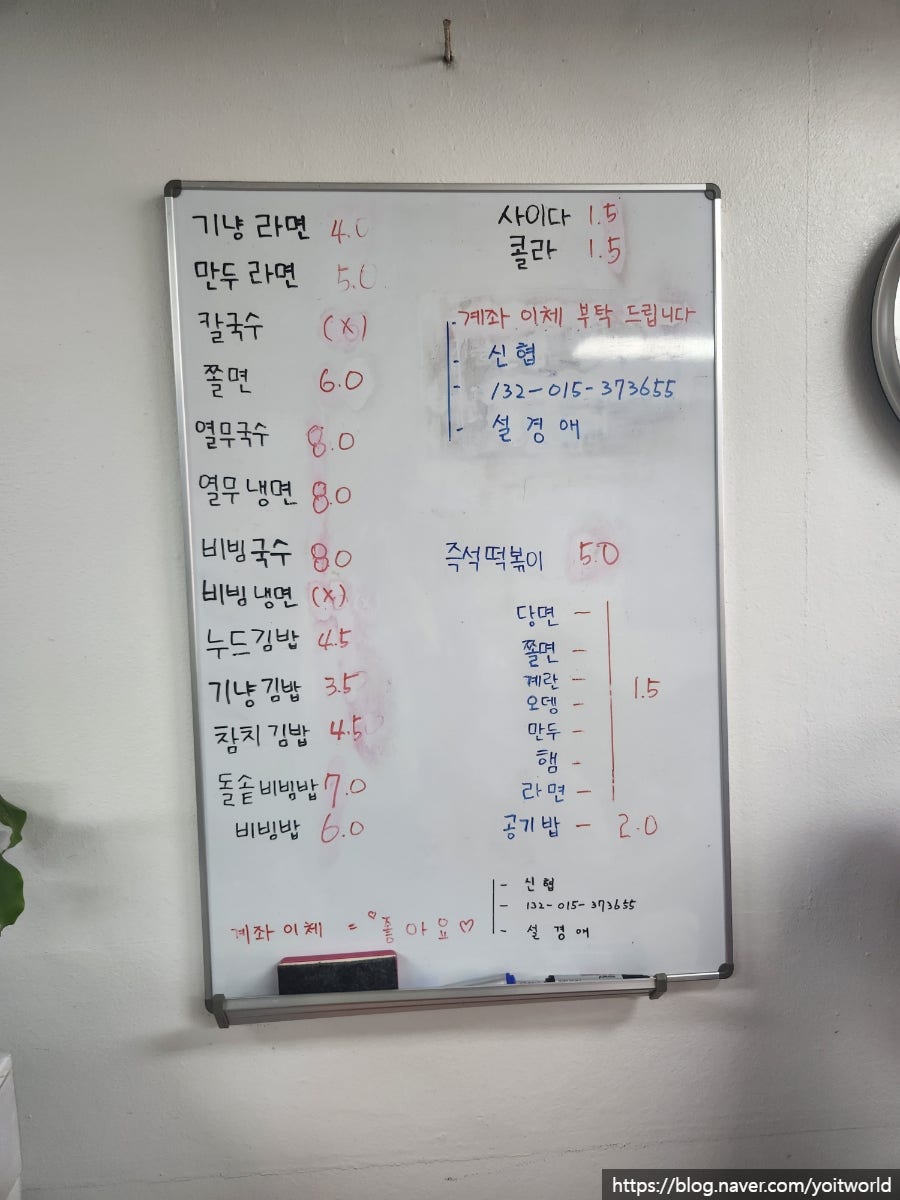 기냥 라면 4.0
만두 라면 5.0
칼국수 (x)
쫄면 6.0
열무국수 8.0
열무 냉면 8.0
비빔국수 8.0
비빔냉면 (x)
누드김밥 4.5
기냥김밥 3.5
참치김밥 4.5
돌솥비빔밥 7.0
비빔밥 6.0
계좌 이체 = ♡좋아요♡
사이다 1.5
콜라 1.5
계좌 이체 부탁 드립니다
- 신협
- 132-015-373655
- 설경애
즉석떡볶이 5.0
당면 -
쫄면 -
계란 -
오뎅 -
만두 -
햄 -
라면 -
1.5
공기밥 - 2.0
- 신협
- 132-015-373655
- 설경애
https://blog.naver.com/yoitworld